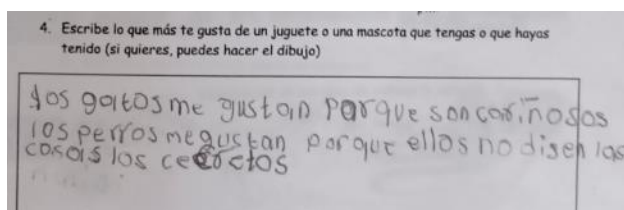 4. Escribe lo que más te gusta de un juguete o una mascota que tengas o que hayas
tenido (si quieres, puedes hacer el dibujo)
los gatos me gustan porque son cariñosos
los perros me gustan porque ellos no disen las
cosas los